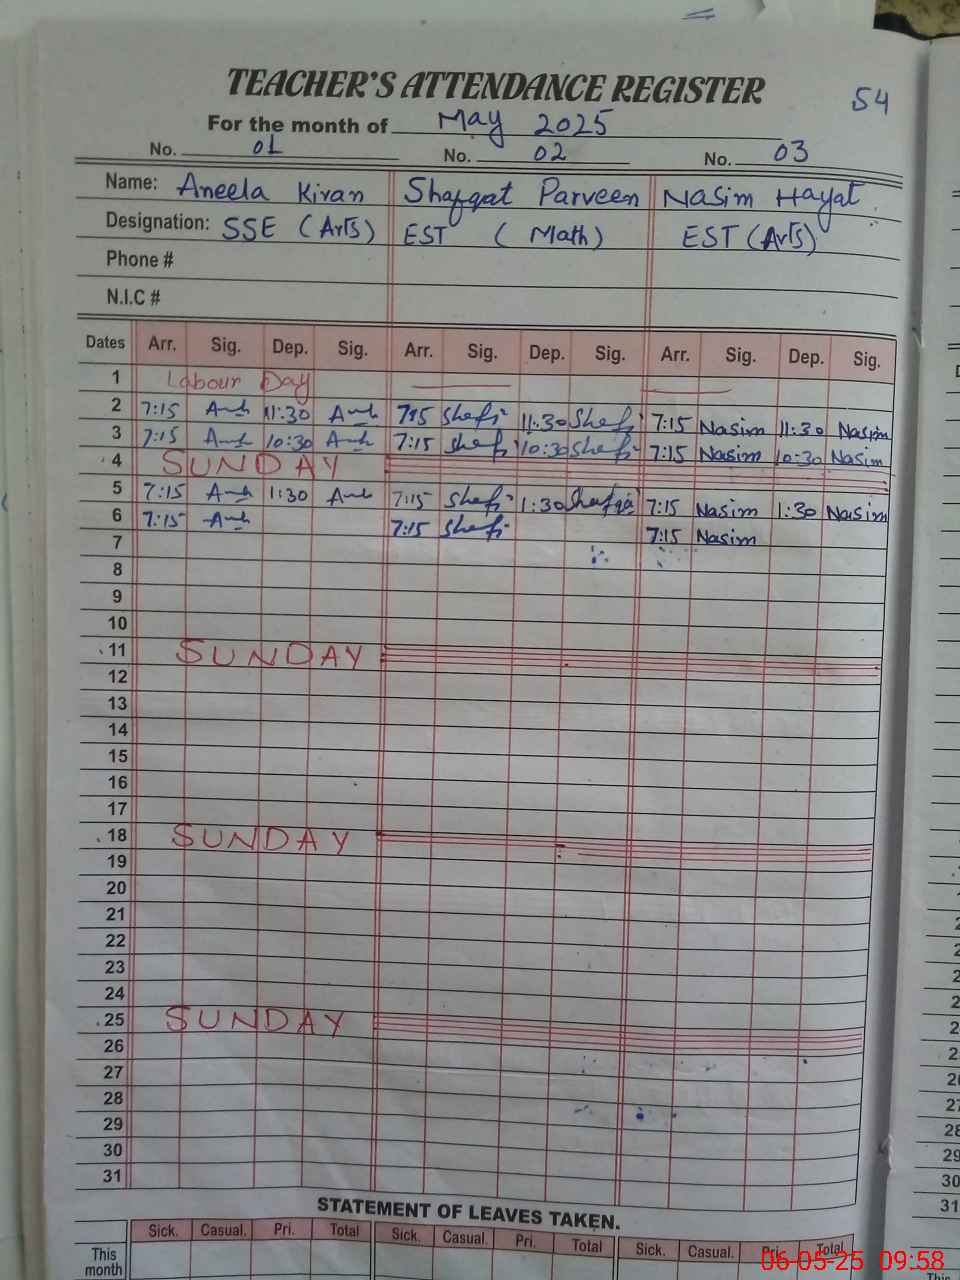 TEACHER'S ATTENDANCE REGISTER
54
For the month of May 2025
No. 01 No. 02 No. 03
Name: Aneela Kiran Shafqat Parveen Nasim Hayat
Designation: SSE (Arts) EST (Math) EST (Arts)
Phone #
N.I.C #
Dates Arr. Sig. Dep. Sig. Arr. Sig. Dep. Sig. Arr. Sig. Dep. Sig.
1 Labour Day
2 7:15 11:30 7:15 11:30 7:15 Nasim 11:30 Nasim
3 7:15 10:30 7:15 10:30 7:15 Nasim 10:30 Nasim
4 SUNDAY
5 7:15 1:30 7:15 1:30 7:15 Nasim 1:30 Nasim
6 7:15 7:15 7:15 Nasim
7
8
9
10
11 SUNDAY
12
13
14
15
16
17
18 SUNDAY
19
20
21
22
23
24
25 SUNDAY
26
27
28
29
30
31
STATEMENT OF LEAVES TAKEN.
Sick. Casual. Pri. Total Sick. Casual. Pri. Total Sick. Casual. Pri. Total
This month
06-05-25 09:58
28
29
30
31